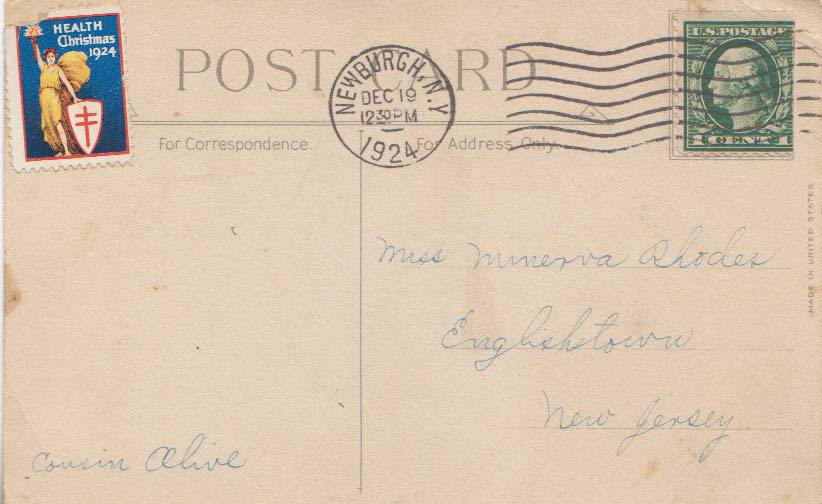 HEALTH
Christmas
1924
POST CARD
NEWBURGH, N.Y.
DEC 19
12 30 PM
1924
U.S. POSTAGE
1 CENT 1
For Correspondence.
For Address Only.
MADE IN UNITED STATES
Miss Minerva Rhodes
Englishtown
New Jersey.
Cousin Olive